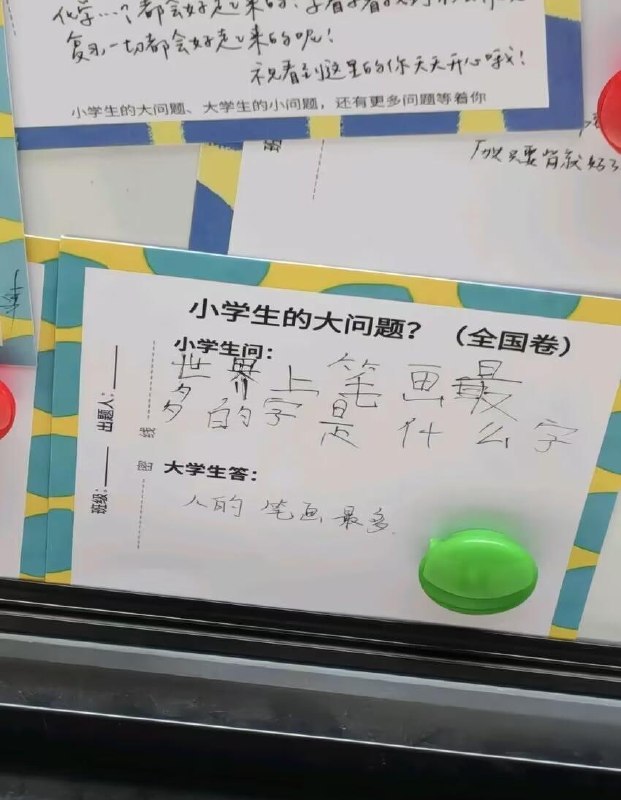 化学…? 都会好起来的,
复习一切都会好起来的呢!
祝看到这里的你天天开心哦!
小学生的大问题、大学生的小问题,还有更多问题等着你
密
小学生的大问题? (全国卷)
小学生问:
世界上笔画最
多的字是什么字
大学生答:
人的 笔画最多.
出题人:
班级:
线
密